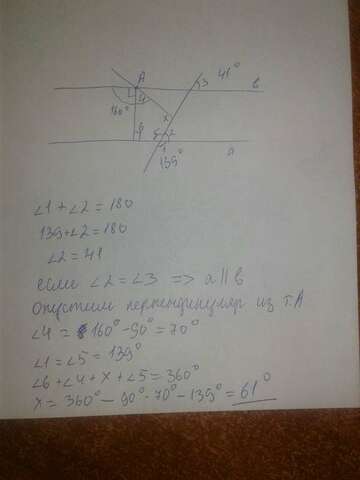 A
41°
3
в
4
160°
x
6
5
2
1
139°
a
∠1 + ∠2 = 180
139 + ∠2 = 180
∠2 = 41
если ∠2 = ∠3 => a || в
Опустим перпендикуляр из т.А
∠4 = 160° - 90° = 70°
∠1 = ∠5 = 139°
∠6 + ∠4 + x + ∠5 = 360°
x = 360° - 90° - 70° - 139° = 61°